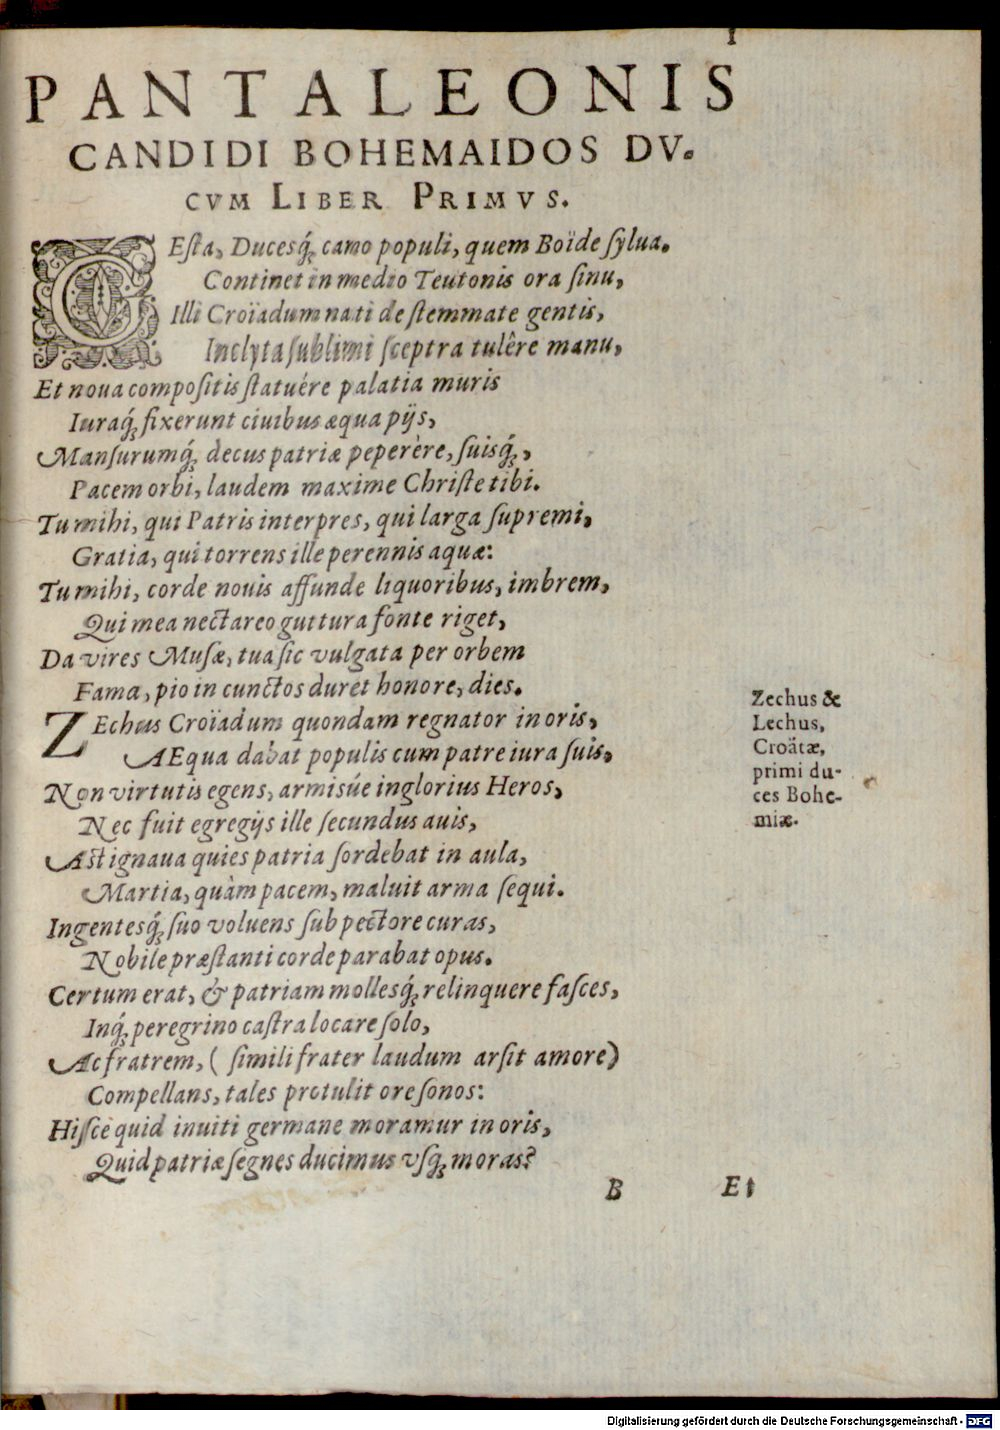 1
PANTALEONIS
CANDIDI BOHEMAIDOS DV-
CVM LIBER PRIMVS.
GEſta, Ducesq́; cano populi, quem Boïde ſylua,
Continet in medio Teutonis ora ſinu,
Illi Croïadum nati de ſtemmate gentis,
Inclyta ſublimi ſceptra tulêre manu,
Et noua compoſitis ſtatuére palatia muris
Iuraq́; fixerunt ciuibus æqua pijs,
Manſurumq́; decus patriæ peperère, ſuisq́;,
Pacem orbi, laudem maxime Chriſte tibi.
Tu mihi, qui Patris interpres, qui larga ſupremi,
Gratia, qui torrens ille perennis aquæ:
Tu mihi, corde nouis affunde liquoribus, imbrem,
Qui mea nectareo guttura fonte riget,
Da vires Muſæ, tua ſic vulgata per orbem
Fama, pio in cunctos duret honore, dies.
ZEchus Croïadum quondam regnator in oris,
AEqua dabat populis cum patre iura ſuis,
Non virtutis egens, armisúe inglorius Heros,
Nec fuit egregijs ille ſecundus auis,
Aſt ignaua quies patria ſordebat in aula,
Martia, quàm pacem, maluit arma ſequi.
Ingentesq́; ſuo voluens ſub pectore curas,
Nobile præſtanti corde parabat opus.
Certum erat, & patriam mollesq́; relinquere faſces,
Inq́; peregrino caſtra locare ſolo,
Ac fratrem, ( ſimili frater laudum arſit amore)
Compellans, tales protulit ore ſonos:
Hiſce quid inuiti germane moramur in oris,
Quid patriæ ſegnes ducimus vſq́; moras?
B Et
Zechus &
Lechus,
Croätæ,
primi du-
ces Bohe-
miæ.
Digitalisierung gefördert durch die Deutsche Forschungsgemeinschaft - DFG